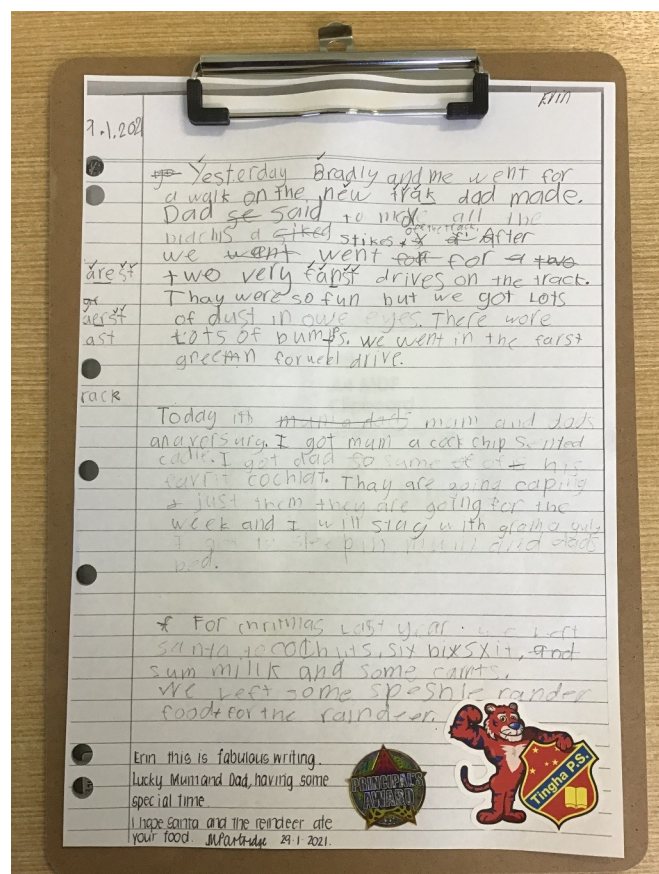 Erin
Yesterday Bradly and me went for
a walk on the new trak dad made.
Dad se said to all the
a stiked stikes of the track. After
we want went for for a two
two very fanst drives on the track.
Thay were so fun but we got Lots
of dust in owe eyes. There wore
Lots of bumps. we went in the farst
forweel drive.
arest
aerst
ast
rack
Today ith mum and dads
anaversurg. I got mum a cock chip sented
cadle. I got dad so sume of his
favrit cochlat. Thay are going caping
just them they are going for the
week and I will stay with
I in mum and dads
bed.
For chrithmas Last year we Left
santa six bixsxit, and
sum millk and some carits.
We Left some speshle rander
food for the raindeer.
Erin this is fabulous writing.
Lucky Mum and Dad, having some
special time
I hope Santa and the reindeer ate
your food. MPartridge 29.1.2021.
PRINCIPAL'S
AWARD
Tingha P.S.